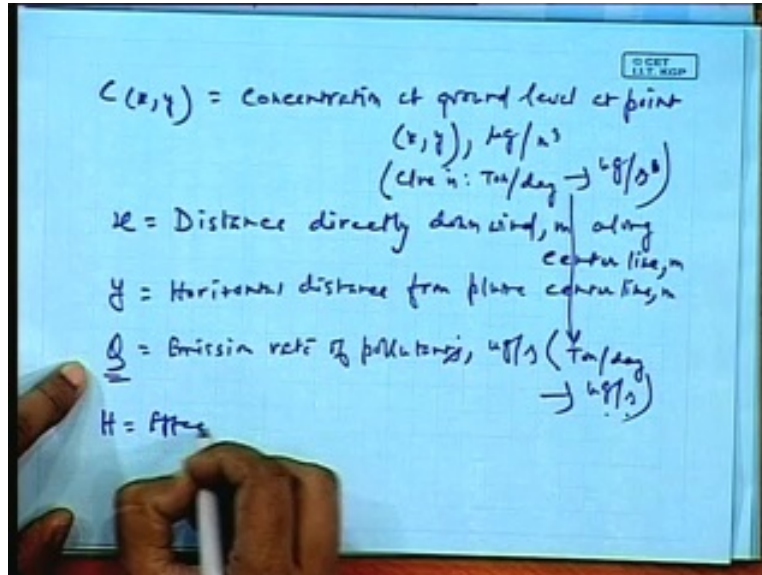 © CET
I.I.T. KGP
C(x,y) = Concentration at ground level at point
(x,y), μg/m³
(Give n: Ton/day → μg/s)
x = Distance directly down wind, m along
center line, m
y = Horizontal distance from plume center line, m
Q = Emission rate of pollutants, μg/s (Ton/day
→ μg/s)
H = Effec